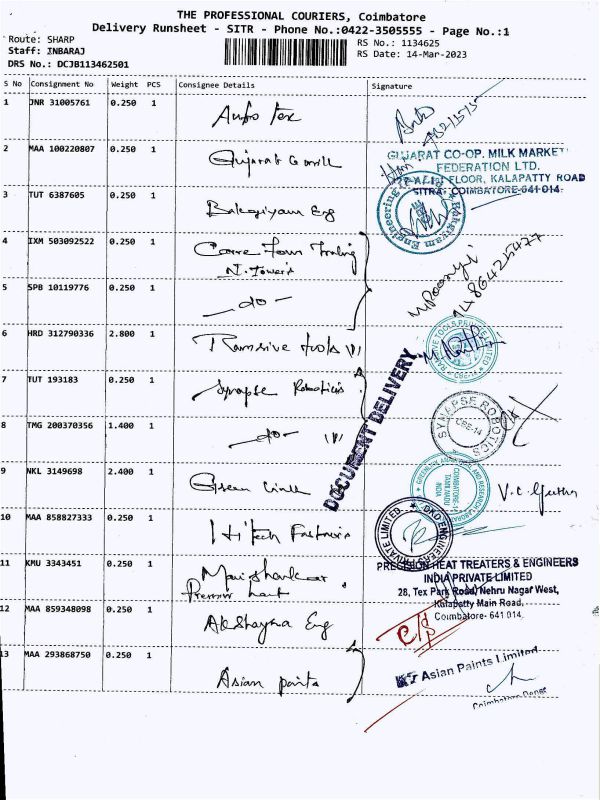 THE PROFESSIONAL COURIERS, Coimbatore
Delivery Runsheet - SITR - Phone No.:0422-3505555 - Page No.:1
Route: SHARP
Staff: INBARAJ
DRS No.: DCJB113462501
RS No.: 1134625
RS Date: 14-Mar-2023
S No Consignment No Weight PCS Consignee Details Signature
1 JNR 31005761 0.250 1 Auto Tex
2 MAA 100220807 0.250 1 Gujarat
GUJARAT CO-OP. MILK MARKET
FEDERATION LTD.
FLOOR, KALAPATTY ROAD
SITRA, COIMBATORE-641 014.
3 TUT 6387605 0.250 1 Bakgiyam Eng
Bakgiyam Engineering
4 IXM 503092522 0.250 1 Carre Four Trading
N. Towers
5 SPB 10119776 0.250 1 -do-
M. Poongi
9486425477
6 HRD 312790336 2.800 1 Ramsive tools
M. Nathi
7 TUT 193183 0.250 1 Synapse Robotics
DOCUMENT DELIVERY
SYNAPSE ROBOTICS
CBE-14
8 TMG 200370356 1.400 1 -do-
9 NKL 3149698 2.400 1 Green
COIMBATORE-14
TAMILNADU
INDIA
10 MAA 858827333 0.250 1 Hitech Fastners
PRIVATE LIMITED
11 KMU 3343451 0.250 1 Manishankar
Premier
PRECISION HEAT TREATERS & ENGINEERS
INDIA PRIVATE LIMITED
28, Tex Park Road, Nehru Nagar West,
Kalapatty Main Road,
Coimbatore- 641 014.
12 MAA 859348098 0.250 1 Akshayaa Eng
13 MAA 293868750 0.250 1 Asian paints
Asian Paints Limited
Coimbatore Depot